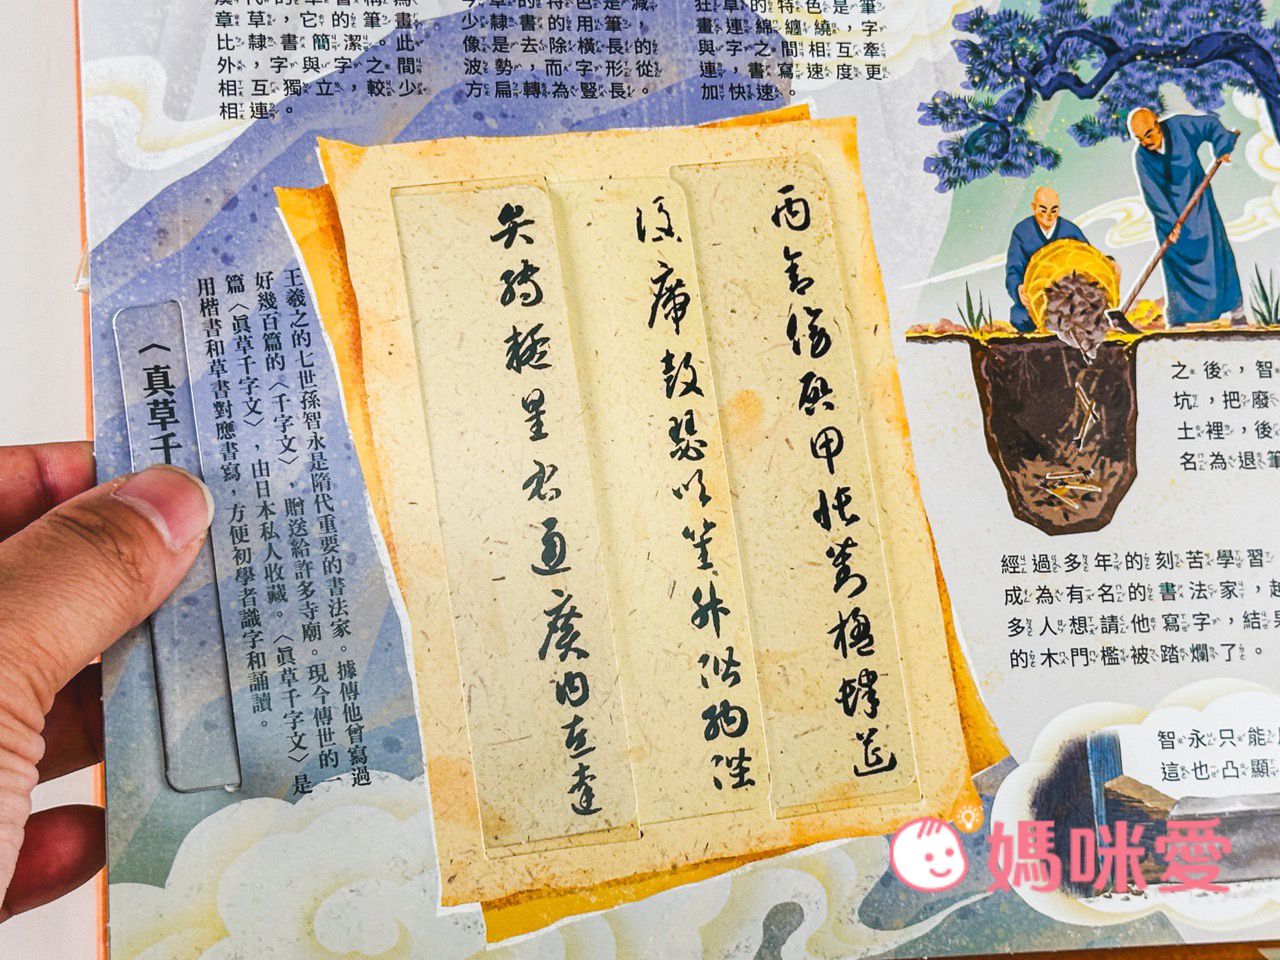 章草，它的筆畫
比隸書簡潔。此
外，字與字之間
相互獨立，較少
相連。
今草的特色是減
少隸書的用筆，
像是去除橫長的
波勢，而字形從
方扁轉為豎長。
狂草的特色是筆
畫連綿纏繞，字
與字之間相互牽
連，書寫速度更
加快速。
丙舍傍啟甲帳對楹肆筵
設席鼓瑟吹笙升階納陛
弁轉疑星右通廣內左達
王羲之的七世孫智永是隋代重要的書法家。據傳他曾寫過
好幾百篇的〈千字文〉，贈送給許多寺廟。現今傳世的一
篇〈真草千字文〉，由日本私人收藏。〈真草千字文〉是
用楷書和草書對應書寫，方便初學者識字和誦讀。
〈真草千
之後，智
坑，把廢
土裡，後
名為退筆
經過多年的刻苦學習
成為有名的書法家，起
多人想請他寫字，結果
的木門檻被踏爛了。
智永只能
這也凸顯
媽咪愛